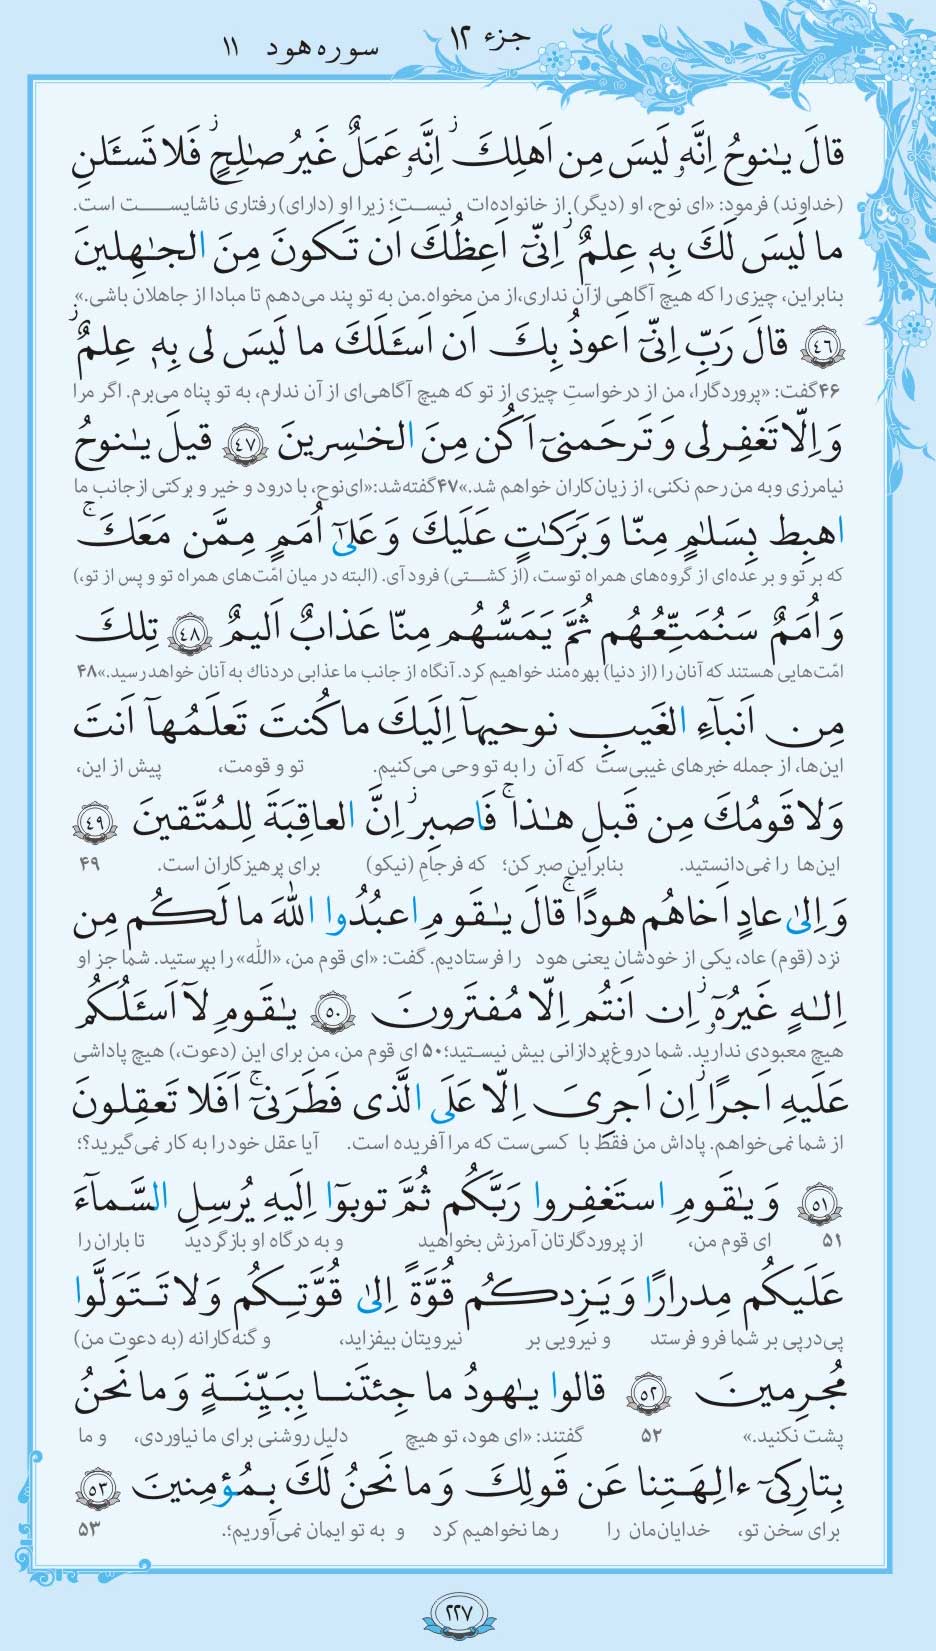 جزء ۱۲
سوره هود ۱۱
قالَ یـٰنوحُ اِنَّهٗ لَیسَ مِن اَهلِكَ ۖ اِنَّهٗ عَمَلٌ غَیرُ صـٰلِحٍ ۖ فَلا تَسـَٔلنِ
(خداوند) فرمود: «ای نوح، او (دیگر) از خانواده‌ات نیست؛ زیرا او (دارای) رفتاری ناشایست است.
ما لَیسَ لَكَ بِهٖ عِلمٌ ۖ اِنّیٓ اَعِظُكَ اَن تَكونَ مِنَ الجـٰهِلینَ
بنابراین، چیزی را که هیچ آگاهی ازآن نداری،از من مخواه.من به تو پند می‌دهم تا مبادا از جاهلان باشی.»
﴿٤٦﴾ قالَ رَبِّ اِنّیٓ اَعوذُ بِكَ اَن اَسـَٔلَكَ ما لَیسَ لی بِهٖ عِلمٌ ۖ
۴۶گفت: «پروردگارا، من از درخواستِ چیزی از تو که هیچ آگاهی‌ای از آن ندارم، به تو پناه می‌برم. اگر مرا
وَ اِلّا تَغفِرلی وَ تَرحَمنیٓ اَكُن مِنَ الخـٰسِرینَ ﴿٤٧﴾ قیلَ یـٰنوحُ
نیامرزی وبه من رحم نکنی، از زیان‌کاران خواهم شد.»۴۷گفته‌شد:«ای‌نوح، با درود و خیر و برکتی ازجانب ما
اهبِط بِسَلـٰمٍ مِنّا وَ بَرَكـٰتٍ عَلَیكَ وَ عَلیٰٓ اُمَمٍ مِمَّن مَعَكَ ۚ
که بر تو و بر عده‌ای از گروه‌های همراه توست، (از کشتی) فرود آی. (البته در میان امّت‌های همراه تو و پس از تو،)
وَ اُمَمٌ سَنُمَتِّعُهُم ثُمَّ یَمَسُّهُم مِنّا عَذابٌ اَلیمٌ ﴿٤٨﴾ تِلكَ
امّت‌هایی هستند که آنان را (از دنیا) بهره‌مند خواهیم کرد. آنگاه از جانب ما عذابی دردناك به آنان خواهد رسید.»۴۸
مِن اَنبآءِ الغَیبِ نوحیهآ اِلَیكَ ما كُنتَ تَعلَمُهآ اَنتَ
این‌ها، از جمله خبرهای غیبی‌ست که آن را به تو وحی می‌کنیم. تو و قومت، پیش از این،
وَلا قَومُكَ مِن قَبلِ هـٰذا ۚ فَاصبِر ۖ اِنَّ العاقِبَةَ لِلمُتَّقینَ ﴿٤٩﴾
این‌ها را نمی‌دانستید. بنابراین صبر کن؛ که فرجامِ (نیکو) برای پرهیزکاران است. ۴۹
وَ اِلیٰ عادٍ اَخاهُم هودًا ۚ قالَ یـٰقَومِ اعبُدُوا اللهَ ما لَكُم مِن
نزد (قوم) عاد، یکی از خودشان یعنی هود را فرستادیم. گفت: «ای قوم من، «اللّه» را بپرستید. شما جز او
اِلـٰهٍ غَیرُهٗٓ ۖ اِن اَنتُم اِلّا مُفتَرونَ ﴿٥٠﴾ یـٰقَومِ لآ اَسـَٔلُكُم
هیچ معبودی ندارید. شما دروغ‌پردازانی بیش نیستید؛۵۰ ای قوم من، من برای این (دعوت،) هیچ پاداشی
عَلَیهِ اَجرًا ۖ اِن اَجرِیَ اِلّا عَلَی الَّذی فَطَرَنیٓ ۚ اَفَلا تَعقِلونَ
از شما نمی‌خواهم. پاداش من فقط با کسی‌ست که مرا آفریده است. آیا عقل خود را به کار نمی‌گیرید؟؛
﴿٥١﴾ وَ یـٰقَومِ استَغفِروا رَبَّكُم ثُمَّ توبوٓا اِلَیهِ یُرسِلِ السَّمآءَ
۵۱ ای قوم من، از پروردگارتان آمرزش بخواهید و به درگاه او بازگردید تا باران را
عَلَیكُم مِدرارًا وَ یَزِدكُم قُوَّةً اِلیٰ قُوَّتِكُم وَلا تَتَوَلَّوا
پی‌درپی بر شما فرو فرستد و نیرویی بر نیرویتان بیفزاید، و گنه‌کارانه (به دعوت من)
مُجرِمینَ ﴿٥٢﴾ قالوا یـٰهودُ ما جِئتَنا بِبَیِّنَةٍ وَ ما نَحنُ
پشت نکنید.» ۵۲ گفتند: «ای هود، تو هیچ دلیل روشنی برای ما نیاوردی، و ما
بِتارِكیٓ ءالِهَتِنا عَن قَولِكَ وَ ما نَحنُ لَكَ بِمُؤمِنینَ ﴿٥٣﴾
برای سخن تو، خدایان‌مان را رها نخواهیم کرد و به تو ایمان نمی‌آوریم؛. ۵۳
۲۲۷